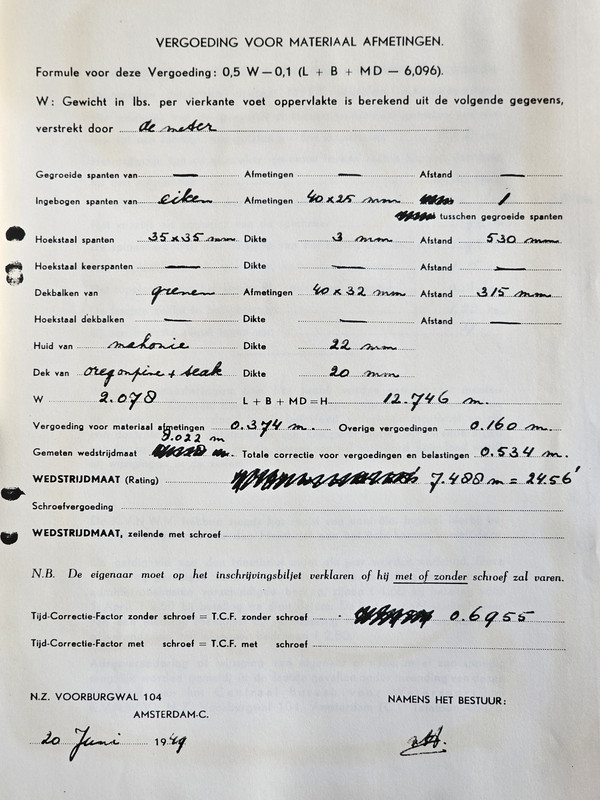 VERGOEDING VOOR MATERIAAL AFMETINGEN.
Formule voor deze Vergoeding: 0,5 W — 0,1 (L + B + MD — 6,096).
W: Gewicht in lbs. per vierkante voet oppervlakte is berekend uit de volgende gegevens,
verstrekt door de meter
Gegroeide spanten van — Afmetingen — Afstand —
Ingebogen spanten van eiken Afmetingen 40 x 25 mm 1
tusschen gegroeide spanten
Hoekstaal spanten 35 x 35 mm Dikte 3 mm Afstand 530 mm
Hoekstaal keerspanten — Dikte — Afstand —
Dekbalken van grenen Afmetingen 40 x 32 mm Afstand 315 mm
Hoekstaal dekbalken — Dikte — Afstand —
Huid van mahonie Dikte 22 mm
Dek van oregonpine + teak Dikte 20 mm
W 2.078 L + B + MD = H 12.746 m.
Vergoeding voor materiaal afmetingen 0.374 m. Overige vergoedingen 0.160 m.
9.022 m
Gemeten wedstrijdmaat m. Totale correctie voor vergoedingen en belastingen 0.534 m.
WEDSTRIJDMAAT (Rating) 7.488 m = 24.56'
Schroefvergoeding
WEDSTRIJDMAAT, zeilende met schroef
N.B. De eigenaar moet op het inschrijvingsbiljet verklaren of hij met of zonder schroef zal varen.
Tijd-Correctie-Factor zonder schroef = T.C.F. zonder schroef 0.6955
Tijd-Correctie-Factor met schroef = T.C.F. met schroef
N.Z. VOORBURGWAL 104 NAMENS HET BESTUUR:
AMSTERDAM-C.
20 Juni 1949